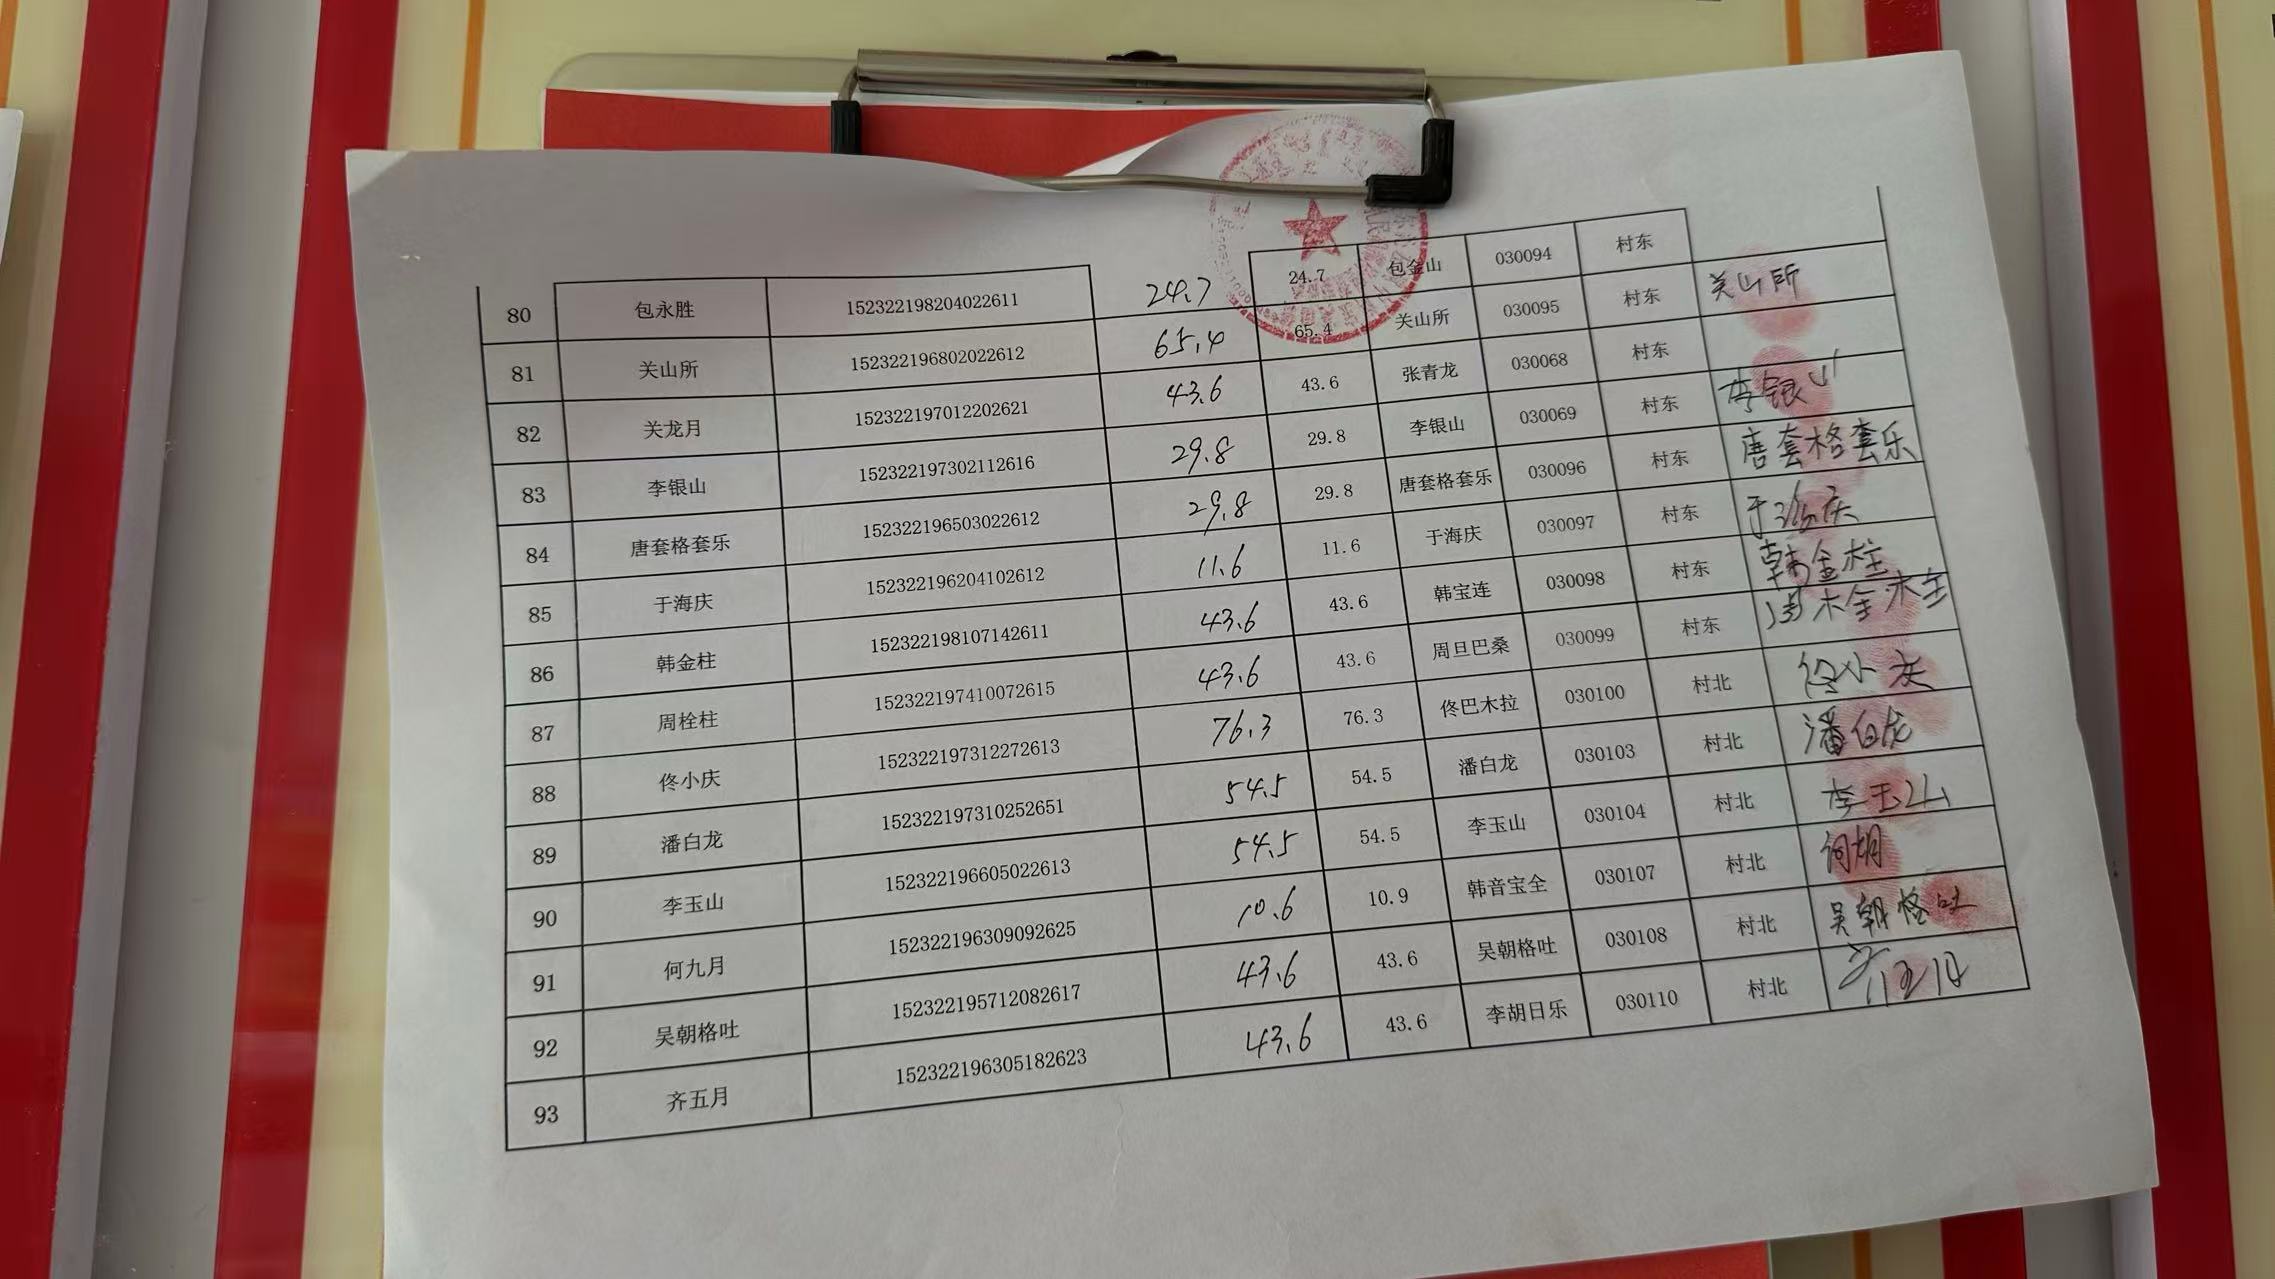 80 包永胜 152322198204022611 24.7 24.7 包金山 030094 村东
81 关山所 152322196802022612 65.4 65.4 关山所 030095 村东 关山所
82 关龙月 152322197012202621 43.6 43.6 张青龙 030068 村东
83 李银山 152322197302112616 29.8 29.8 李银山 030069 村东 李银山
84 唐套格套乐 152322196503022612 29.8 29.8 唐套格套乐 030096 村东 唐套格套乐
85 于海庆 152322196204102612 11.6 11.6 于海庆 030097 村东 于海庆
86 韩金柱 152322198107142611 43.6 43.6 韩宝连 030098 村东 韩金柱
87 周栓柱 152322197410072615 43.6 43.6 周旦巴桑 030099 村东
88 佟小庆 152322197312272613 76.3 76.3 佟巴木拉 030100 村北 佟小庆
89 潘白龙 152322197310252651 54.5 54.5 潘白龙 030103 村北 潘白龙
90 李玉山 152322196605022613 54.5 54.5 李玉山 030104 村北 李玉山
91 何九月 152322196309092625 10.6 10.9 韩音宝全 030107 村北
92 吴朝格吐 152322195712082617 43.6 43.6 吴朝格吐 030108 村北 吴朝格吐
93 齐五月 152322196305182623 43.6 43.6 李胡日乐 030110 村北 齐五月